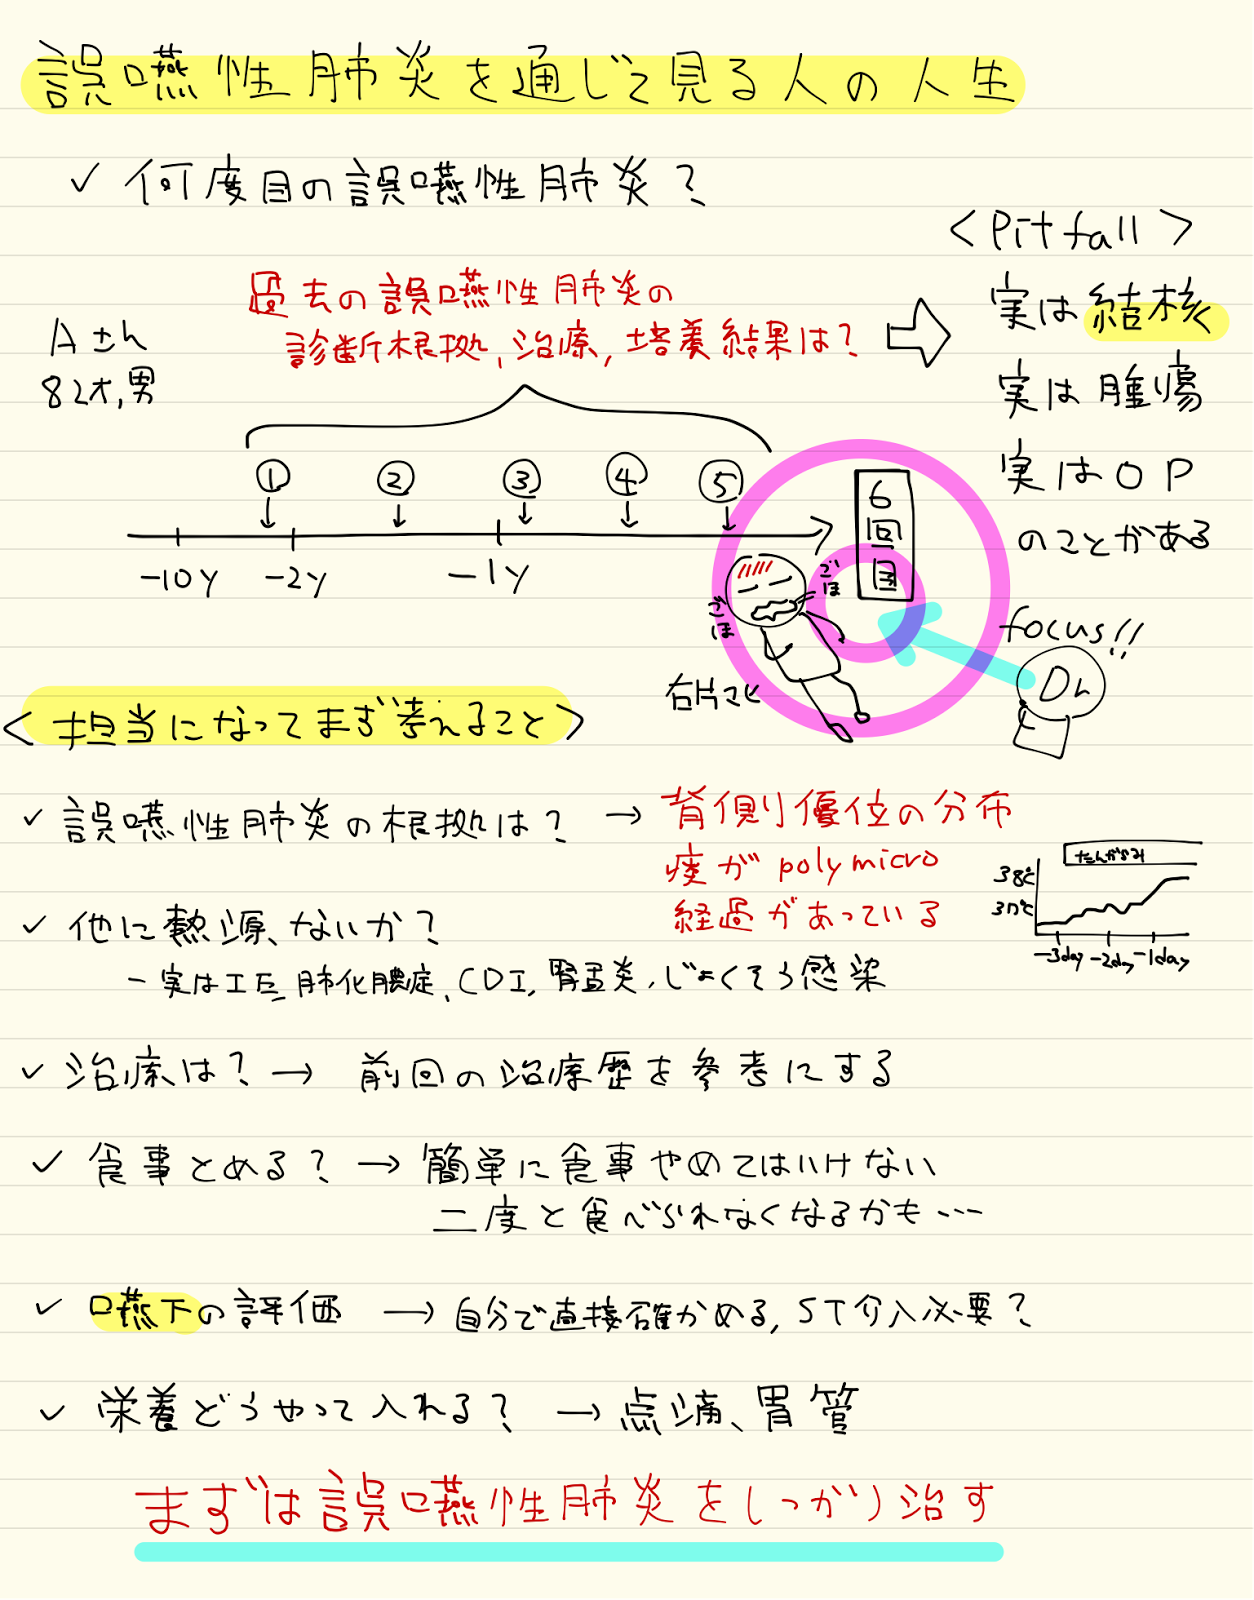 誤嚥性肺炎を通じて見る人の人生
✓ 何度目の誤嚥性肺炎？
過去の誤嚥性肺炎の
診断根拠, 治療, 培養結果は？
Aさん
82才, 男
① ② ③ ④ ⑤
-10y -2y -1y
6回目
ごほ
ごほ
右片マヒ
<Pitfall>
実は結核
実は腫瘍
実はOP
のことがある
focus!!
Dr
<担当になってまず考えること>
✓ 誤嚥性肺炎の根拠は？ → 背側優位の分布
痰がpolymicro
経過があっている
たんがらみ
38℃
37℃
-3day -2day -1day
✓ 他に熱源、ないか？
- 実はIE, 肺化膿症, CDI, 腎盂炎, じょくそう感染
✓ 治療は？ → 前回の治療歴を参考にする
✓ 食事とめる？ → 簡単に食事やめてはいけない
二度と食べられなくなるかも…
✓ 嚥下の評価 → 自分で直接確かめる, ST介入必要？
✓ 栄養どうやって入れる？ → 点滴、胃管
まずは誤嚥性肺炎をしっかり治す